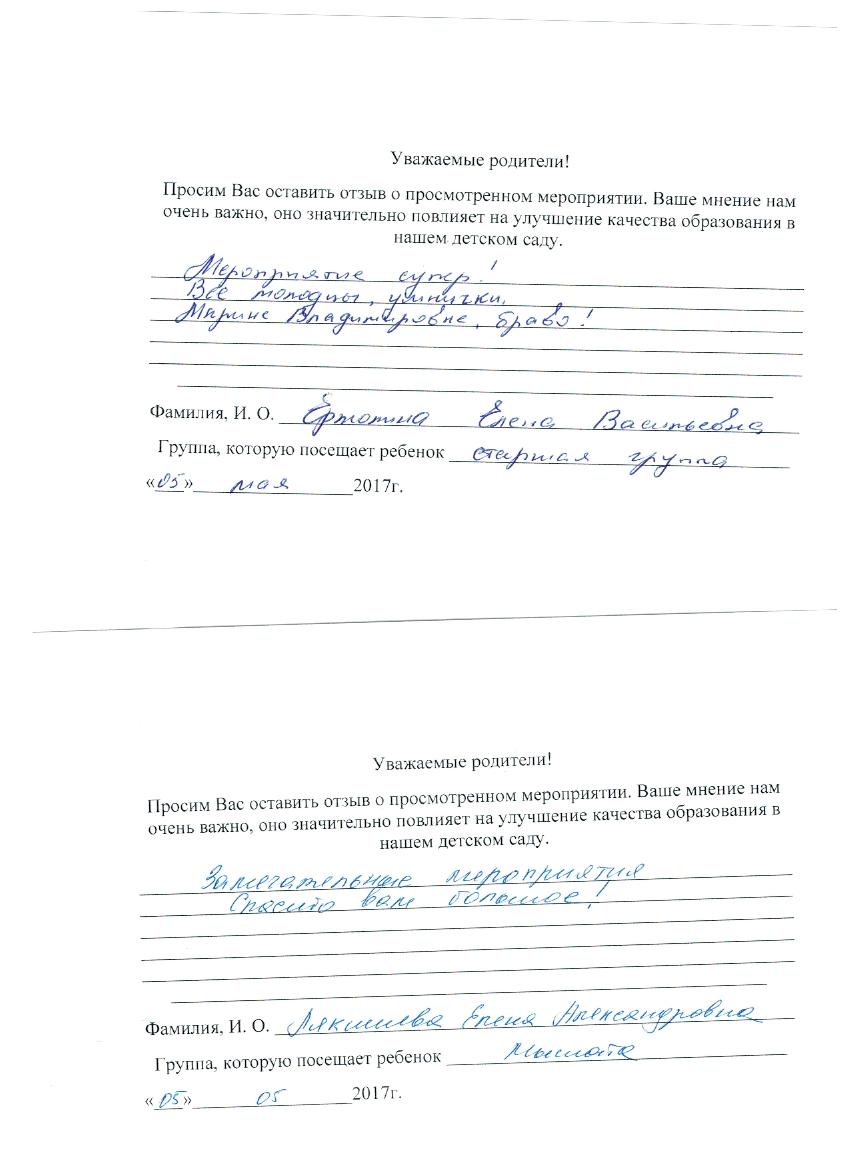 Уважаемые родители!
Просим Вас оставить отзыв о просмотренном мероприятии. Ваше мнение нам
очень важно, оно значительно повлияет на улучшение качества образования в
нашем детском саду.
Мероприятие супер!
Все молодцы, умнички.
Марине Владимировне, браво!
Фамилия, И. О. Елена Васильевна
Группа, которую посещает ребенок старшая группа
«05» мая 2017г.
Уважаемые родители!
Просим Вас оставить отзыв о просмотренном мероприятии. Ваше мнение нам
очень важно, оно значительно повлияет на улучшение качества образования в
нашем детском саду.
Замечательные мероприятия
Спасибо вам большое!
Фамилия, И. О. Елена Александровна
Группа, которую посещает ребенок
«05» 05 2017г.